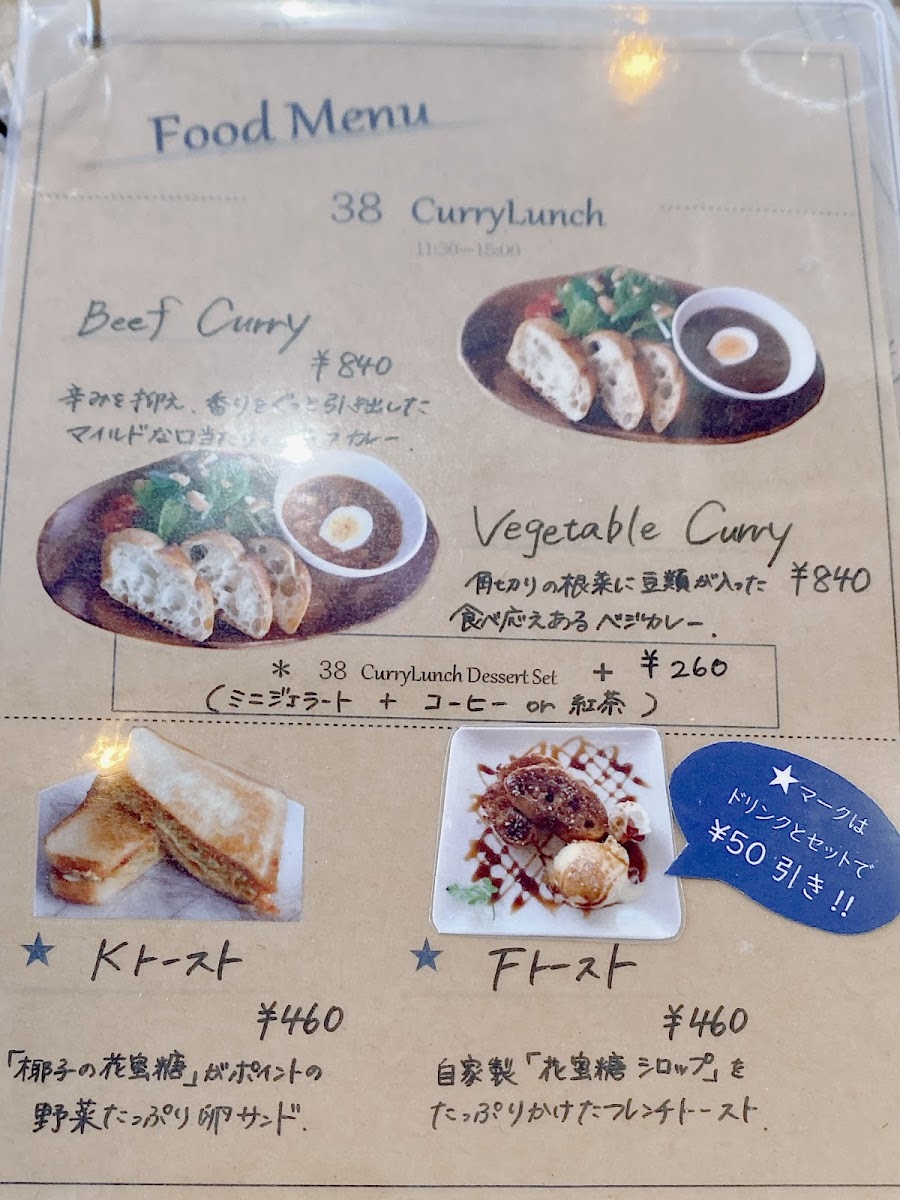 Food Menu
38 CurryLunch
11:30ー15:00
Beef Curry
¥840
辛みを抑え、香りをぐっと引き出した
マイルドな口当たり カレー
Vegetable Curry
角切りの根菜に豆類が入った ¥840
食べ応えあるベジカレー.
* 38 CurryLunch Dessert Set + ¥260
(ミニジェラート + コーヒー or 紅茶)
★マークは
ドリンクとセットで
¥50引き!!
★ Kトースト
¥460
「椰子の花蜜糖」がポイントの
野菜たっぷり卵サンド.
★ Fトースト
¥460
自家製「花蜜糖シロップ」を
たっぷりかけたフレンチトースト.